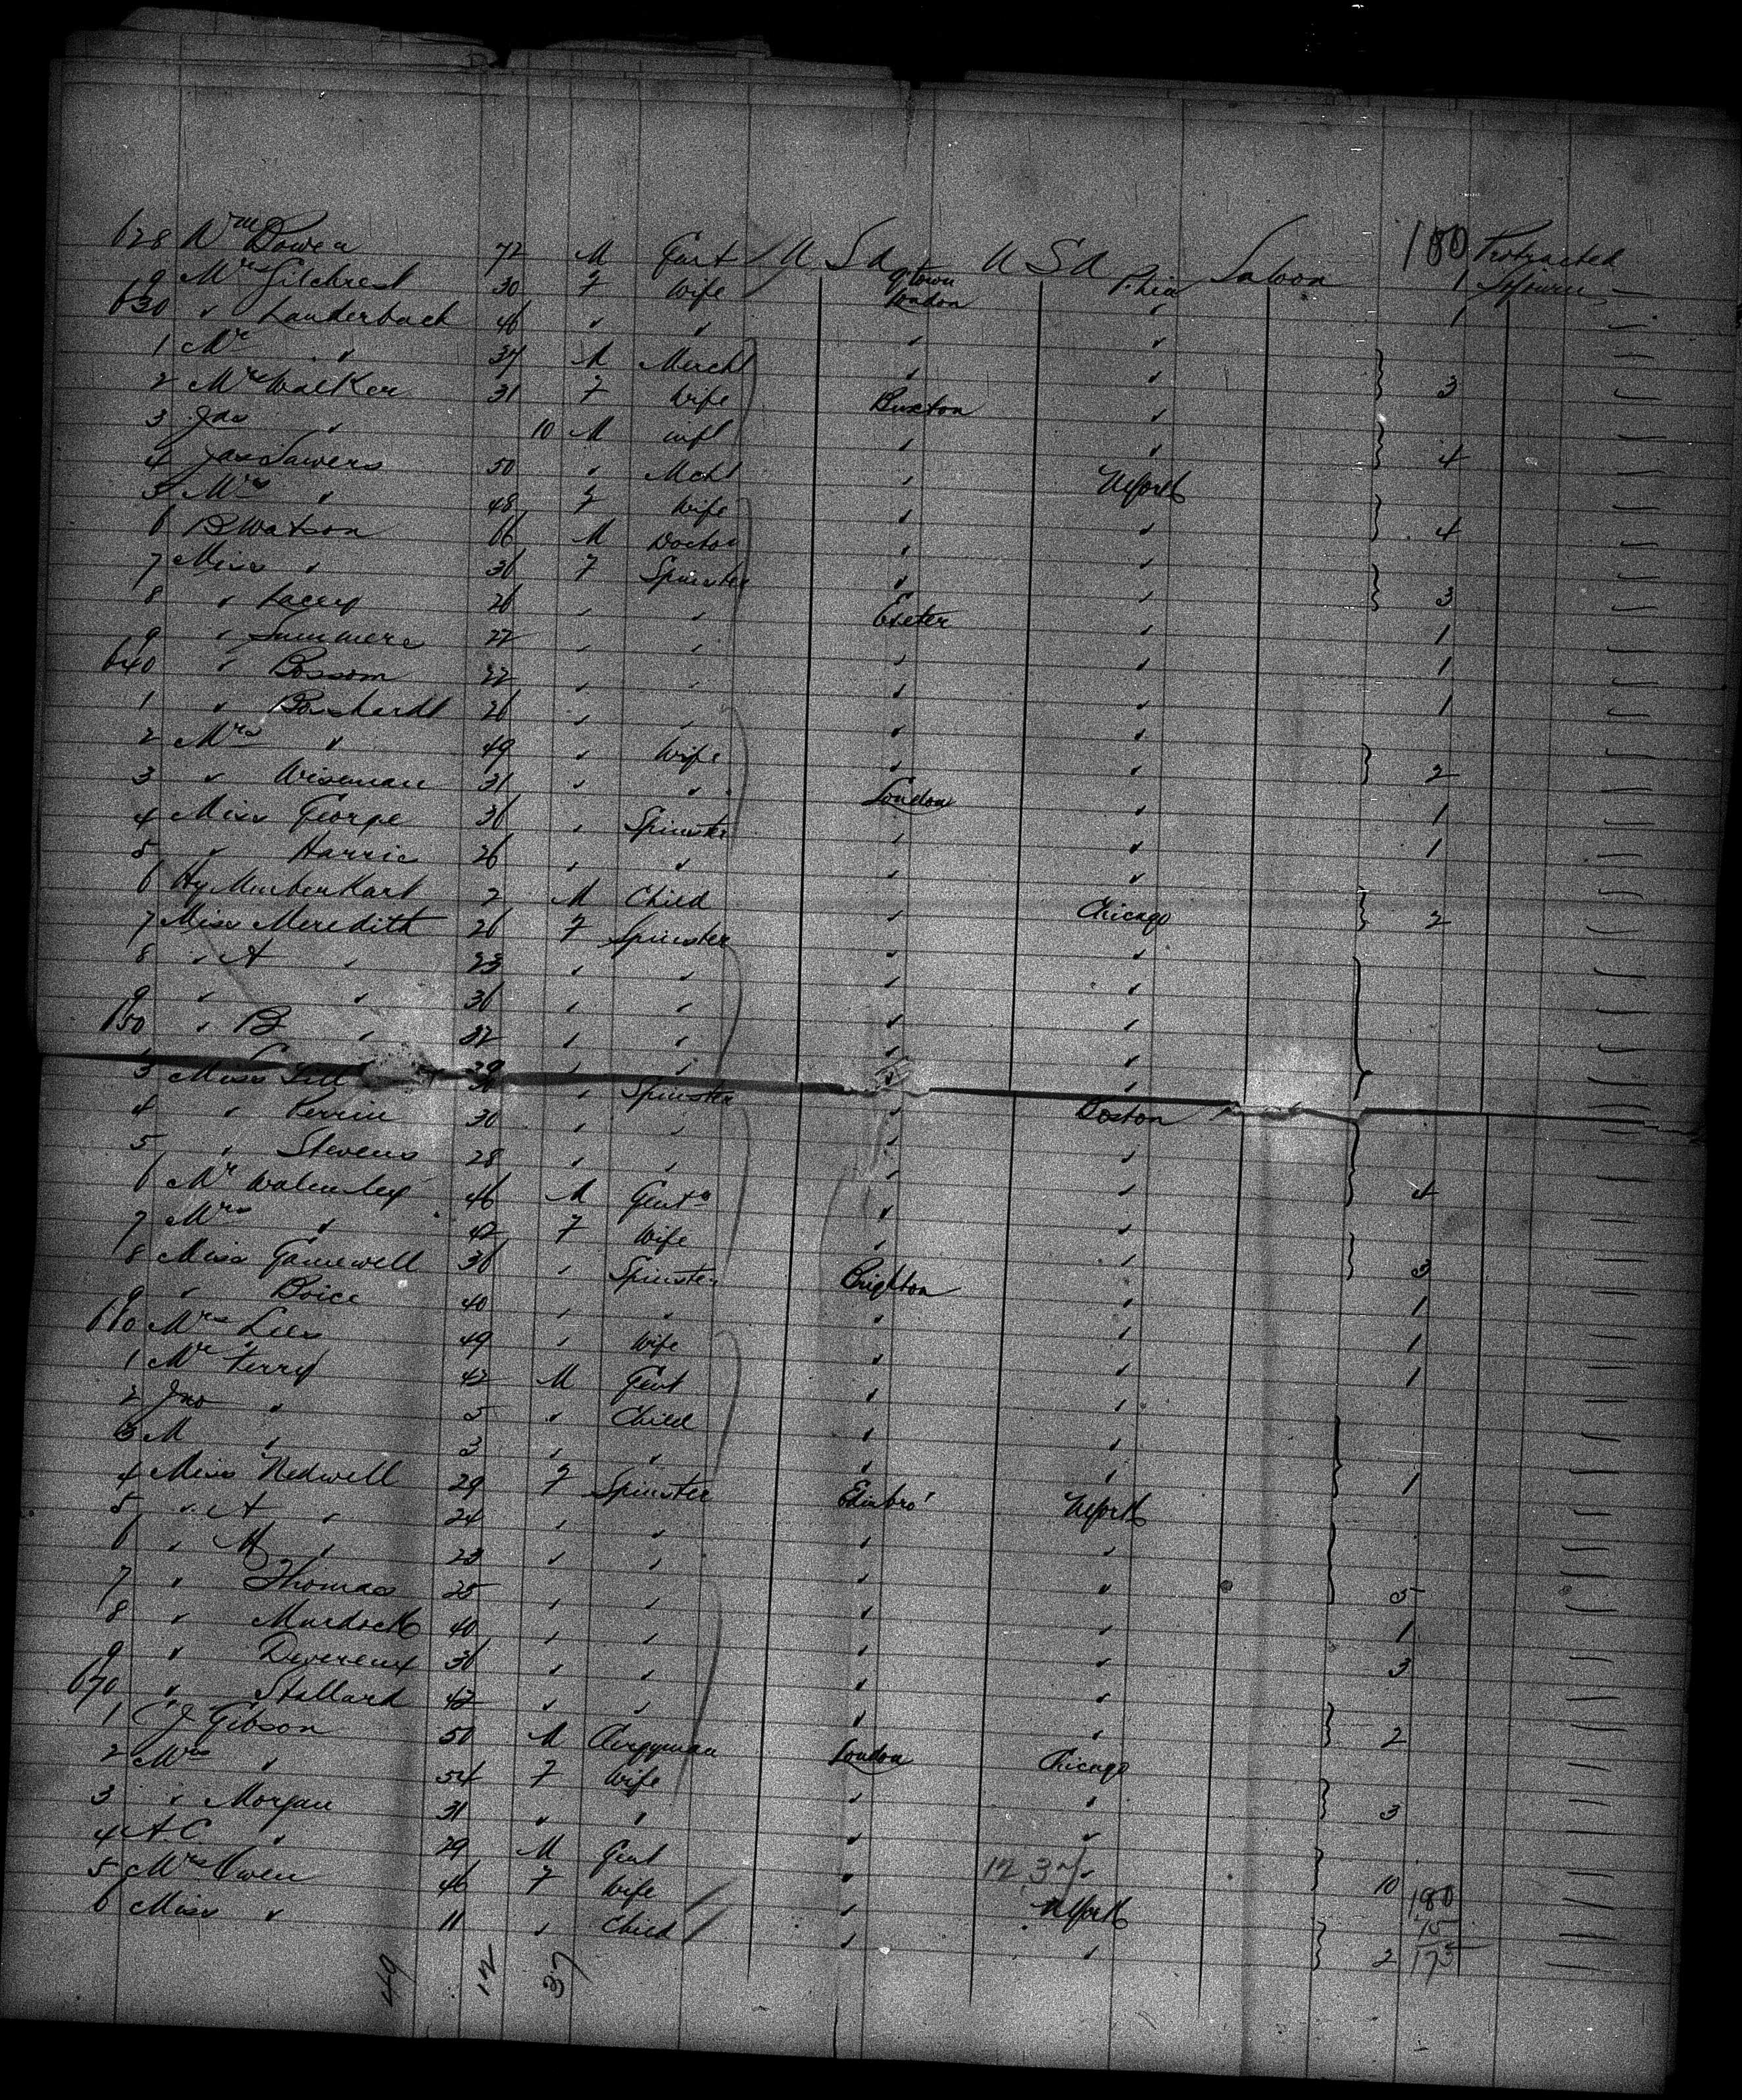 628 Wm Bowen 72 M Gent U S A U S A Saloon 180 Protracted
9 Mrs Gilchrest 30 F Wife Q.town London Phia 1 Sojourn
630 " Lauderbach 46 " " " " 1
1 Mr " 37 M Mercht " "
2 Mrs Walker 31 F Wife Buxton " 3
3 Jas " 10 M inft " "
4 Jas Sawers 50 " Mcht " NYork 4
5 Mrs " 48 F Wife " "
6 B Watson 66 M Doctor " " 4
7 Miss " 36 F Spinster " "
8 " Lacey 26 " " Exeter " 3
9 " Summers 22 " " " " 1
640 " Bossom 22 " " " " 1
1 " 26 " " " " 1
2 Mrs " 49 " Wife " "
3 " Wiseman 31 " " London " 2
4 Miss George 36 " Spinster " " 1
5 " Harris 26 " " " " 1
6 Hy 2 M Child " Chicago
7 Miss Meredith 26 F Spinster " " 2
8 " A " 23 " " " "
9 " " 36 " " " "
650 " B " 32 " " " "
29 " " "
3 Miss " Spinster " Boston
4 " Perrin 30 " " " "
5 " Stevens 28 " " " "
6 Mr 46 M Gent " " 4
7 Mrs " 42 F Wife " "
8 Miss Gamewell 36 " Spinster Brighton " 3
9 " Boice 40 " " " " 1
660 Mrs Lees 49 " Wife " " 1
1 Mr Terry 42 M Gent " " 1
2 Jno " 5 " Child " "
3 M " 3 " " " "
4 Miss Nedwell 29 F Spinster Edinbro' NYork 1
5 " A " 24 " " " "
6 " M " 23 " " " "
7 " Thomas 25 " " " " 5
8 " Murdock 40 " " " " 1
9 " Devereux 36 " " " " 3
670 " Stallard 42 " " " "
1 C J Gibson 50 M Clergyman London Chicago 2
2 Mrs " 54 F Wife " "
3 " Morgan 31 " " " " 3
4 A C " 29 M Gent " 12 37 "
5 Mrs Owen 46 F Wife " NYork 10 180
6 Miss " 11 " Child " " 2 175
49 12 37